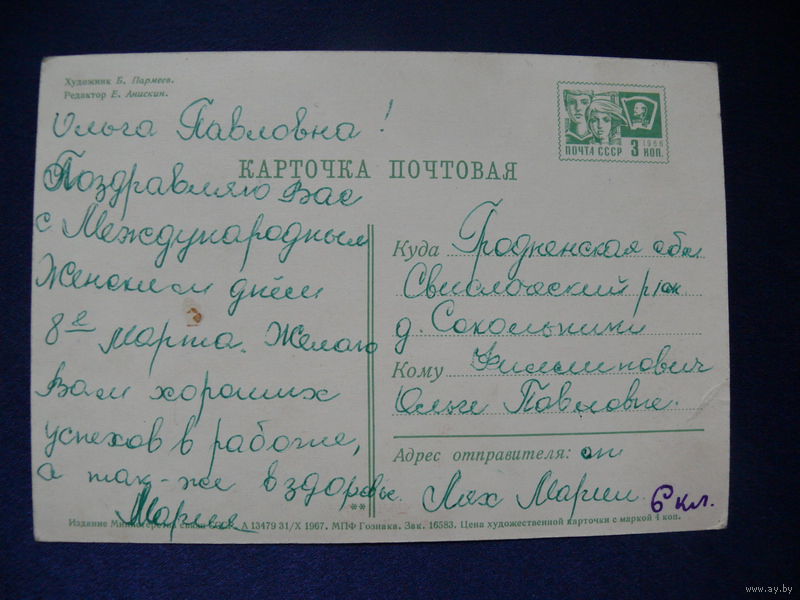 Художник Б. Пармеев.
Редактор Е. Анискин.
Ольга Павловна!
Поздравляю Вас
с Международным
Женским днём
8е Марта. Желаю
Вам хороших
успехов в работе,
а так-же в здоровье.
Мария
ПОЧТА СССР 3 КОП.
1966
КАРТОЧКА ПОЧТОВАЯ
Куда Гродненская обл
Свислочский р/он
д. Сокольники
Кому Филипович
Ольге Павловне.
Адрес отправителя: от
Лях Марии. 6 кл.
Издание Министерства связи СССР. А 13479 31/X 1967. МПФ Гознака. Зак. 16583. Цена художественной карточки с маркой 4 коп.
www.ay.by